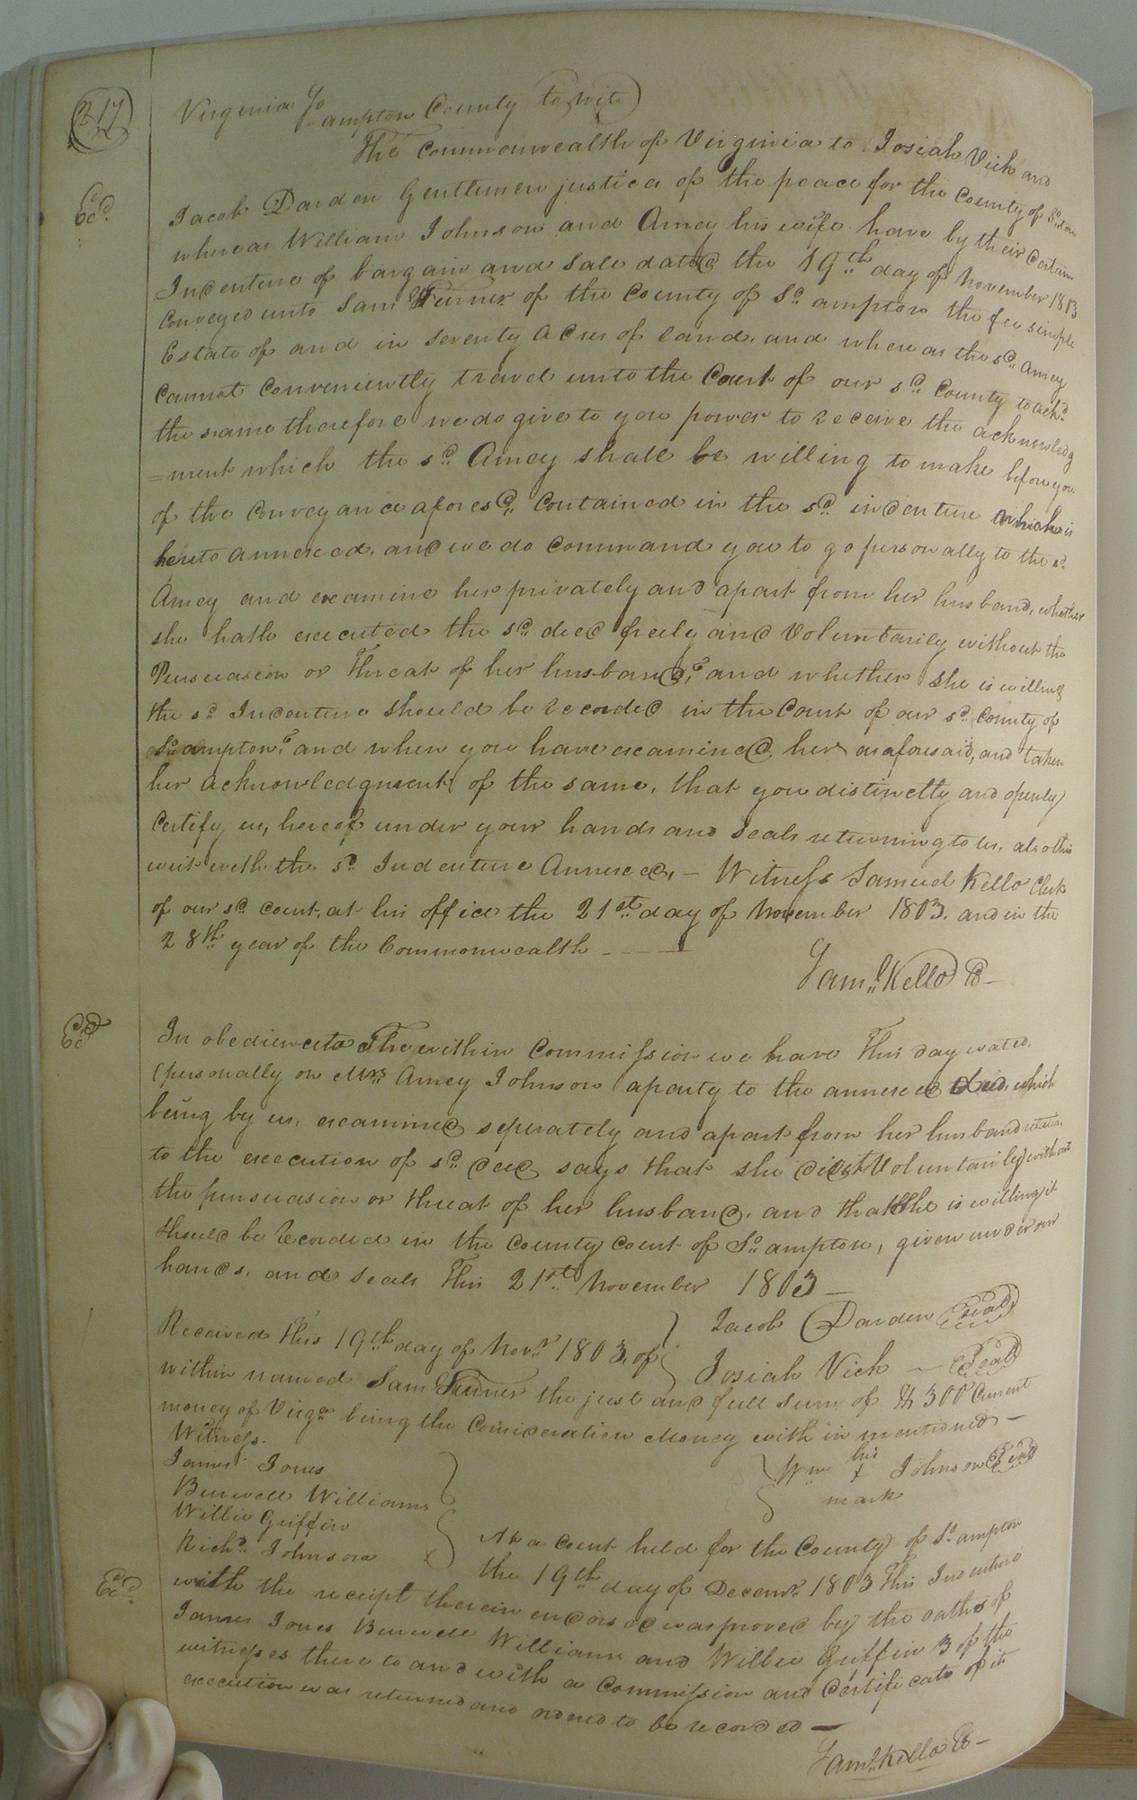 217
Virginia So ampton County to wit
The Commonwealth of Virginia to Josiah Vick and
Exd.
Jacob Darden Gentlemen justices of the peace for the County of So.
whereas William Johnson and Amey his wife have by their Certain
Indenture of bargain and Sale dated the 19th day of November 1803
Conveyed unto Saml Turner of the County of So ampton the fee simple
Estate of and in Seventy Acres of land, and whereas the sd. Amey
Cannot Conveniently travel unto the Court of our sd. County to ackd.
the same therefore we do give to you power to receive the acknowledg
=ment which the sd. Amey shall be willing to make before you
of the Conveyance aforesd. Contained in the sd. indenture which is
hereto annexed, and we do command you to go personally to the sd.
Amey and examine her privately and apart from her husband, whether
she hath executed the sd. deed freely and Voluntarily without the
Persuasion or Threat of her husband, and whether she is willing
the sd. Indenture should be recorded in the Court of our sd. County of
So. ampton, and when you have examined her as aforesaid, and taken
her acknowledgment of the same, that you distinctly and openly
Certify us, hereof under your hands and Seals returning to us, also this
writ with the sd. Indenture Annexed, - Witness Samuel Kello Clerk
of our sd. Court, at his office the 21st. day of November 1803. and in the
28th year of the Commonwealth - - -
Saml. Kello Cc -
Exd.
In obedience to The within Commission we have This day waited,
personally on Mrs. Amey Johnson a party to the annexed deed, which
being by us, examined seperately and apart from her husband
to the execution of sd. deed says that she did it Voluntarily without
the pursuasion or threat of her husband, and that she is willing it
Should be Recorded in the County Court of So. ampton, given under our
hands, and Seals This 21st. November 1803 -
Jacob Darden Seal
Received This 19th day of Novr. 1803, of
Josiah Vick - Seal
within named Saml Turner the just and full Sum of $ 300 Current
money of Virga. being the Consideration Money with in mentioned -
Witness.
James Jones
Wm his x Johnson Seal
mark
Burwell Williams
Willie Griffin
Richd. Johnson x
At a Court held for the County of So. ampton
the 19th day of Decemr. 1803 This Indenture
Exd.
with the receipt therein endorsed was proved by the oaths of
James Jones Burwell Williams and Willie Griffin 3 of the
witnesses thereto and with a Commission and Certificate of its
execution was returned and ordered to be recorded -
Saml. Kello Cc -